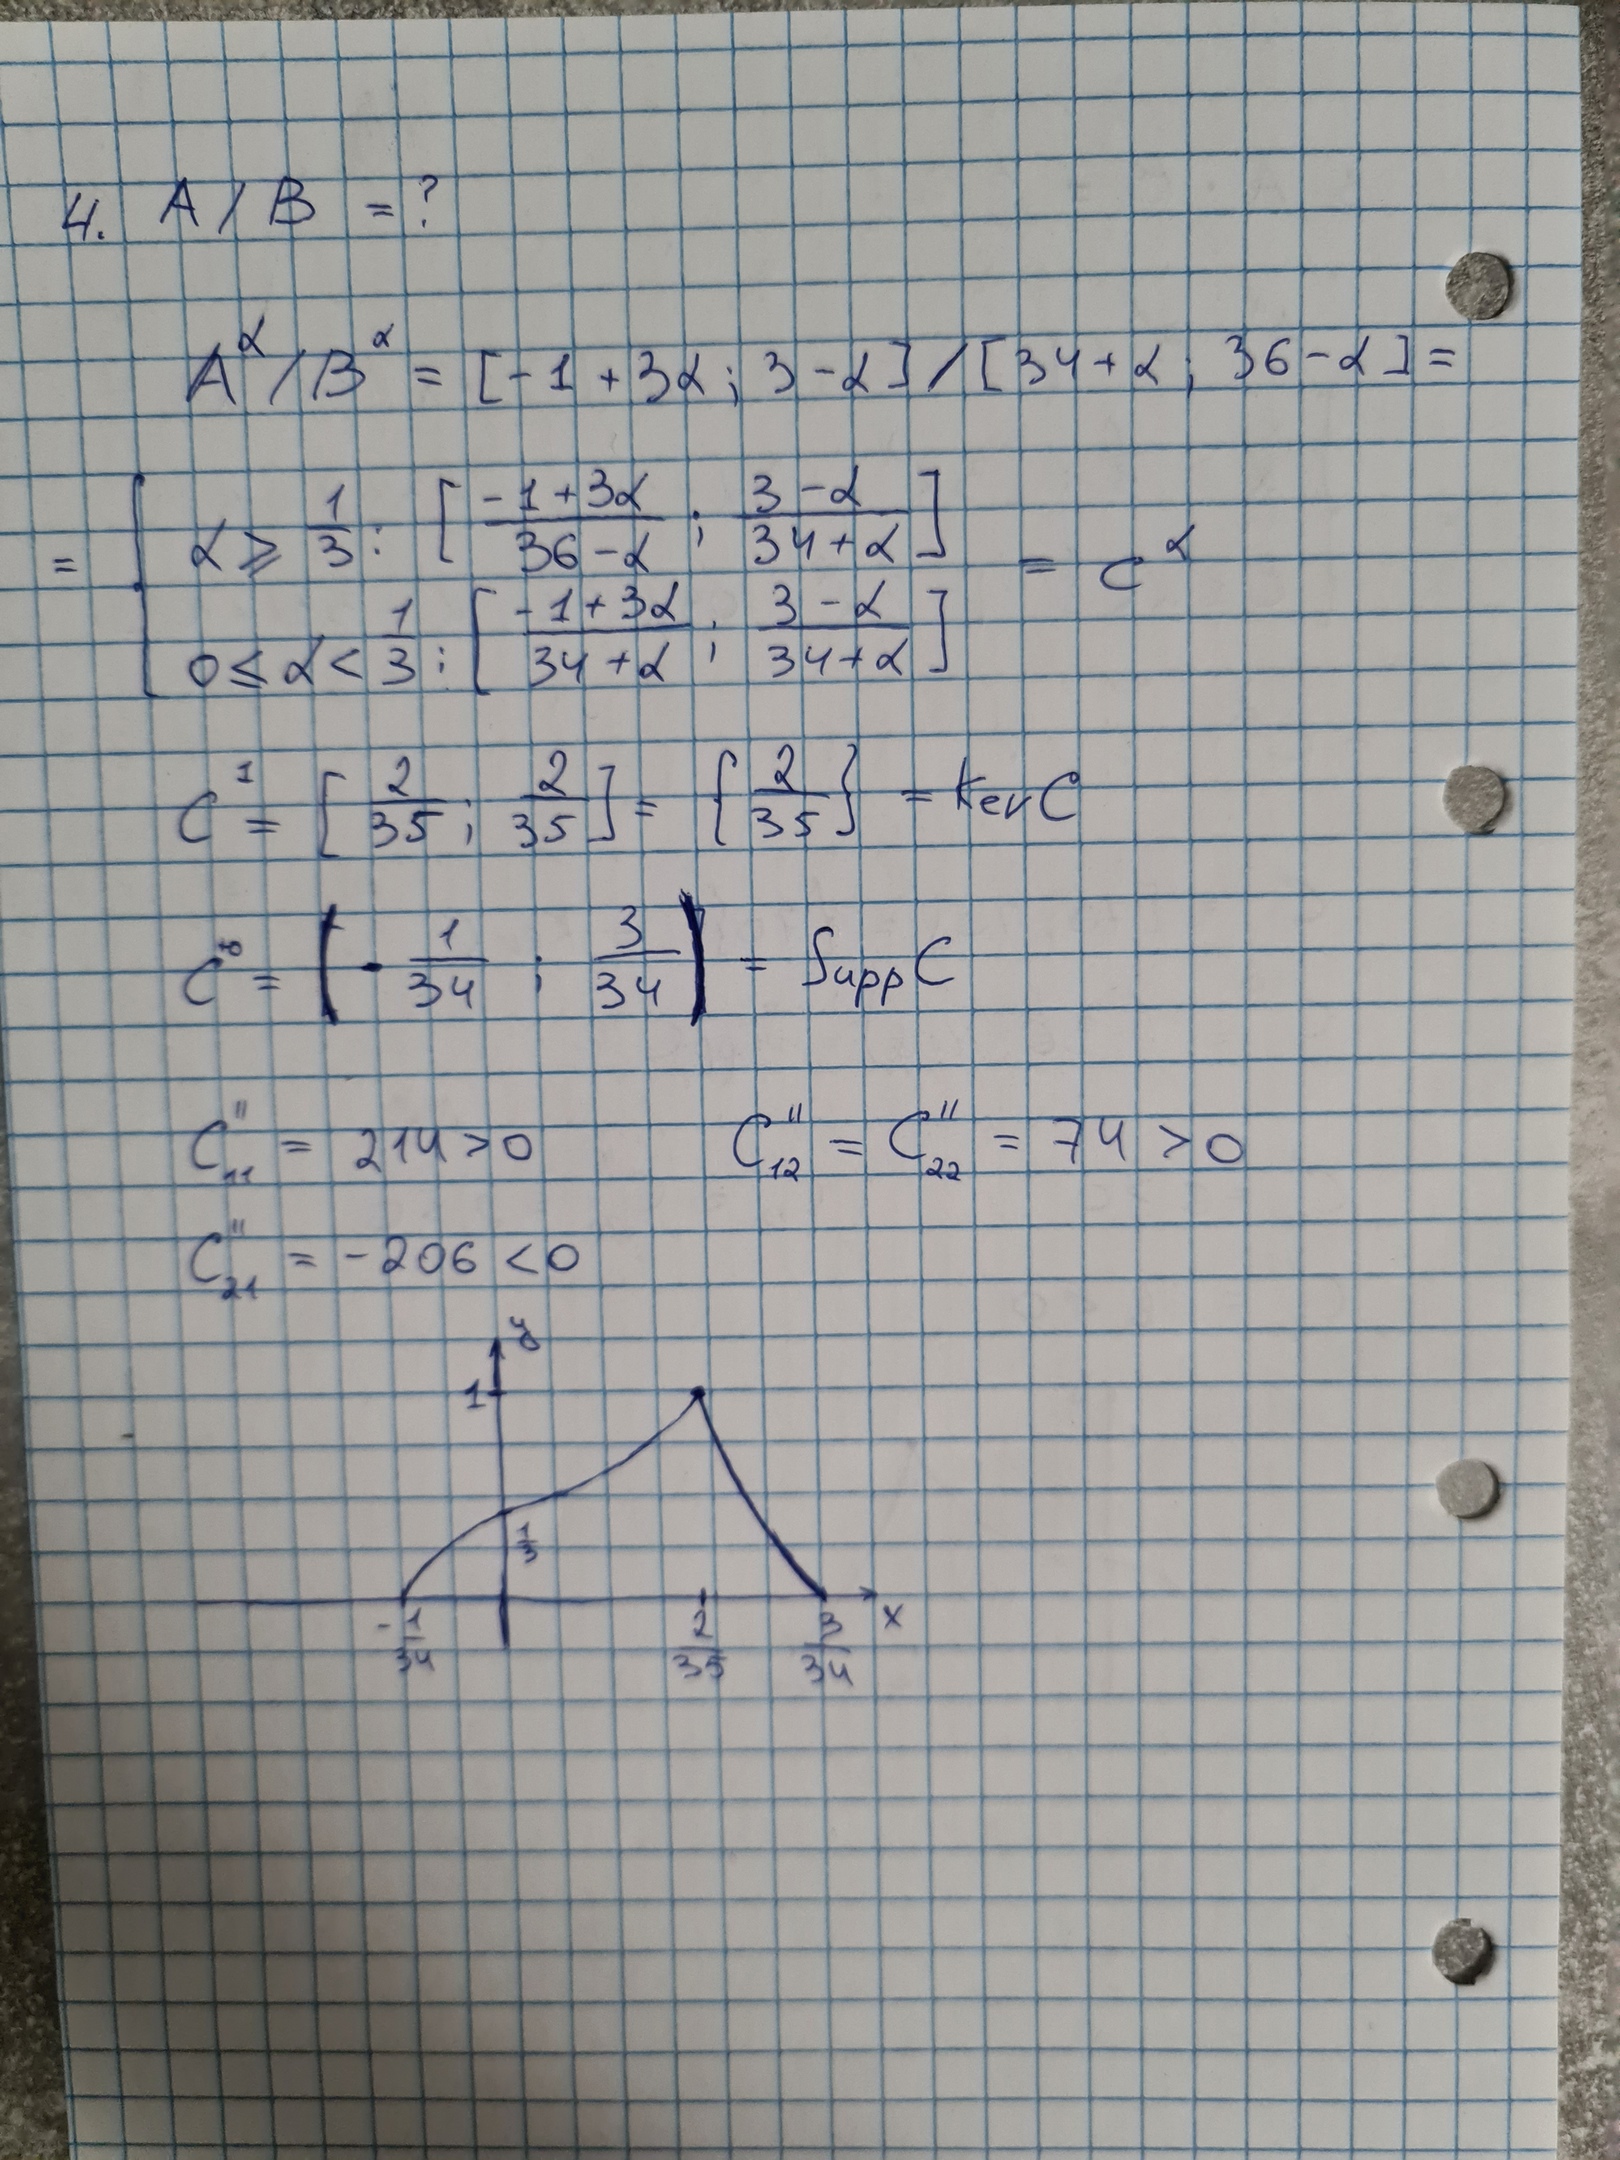 4. A / B = ?
A^α / B^α = [-1 + 3α ; 3 - α] / [34 + α ; 36 - α] =
= [ α ⩾ 1/3 : [ (-1 + 3α)/(36 - α) ; (3 - α)/(34 + α) ]
0 ≤ α < 1/3 : [ (-1 + 3α)/(34 + α) ; (3 - α)/(34 + α) ] = C^α
C^1 = [ 2/35 ; 2/35 ] = { 2/35 } = ker C
C^+0 = ( - 1/34 ; 3/34 ) = Supp C
C''_11 = 214 > 0 C''_12 = C''_22 = 74 > 0
C''_21 = -206 < 0
y
1
1/3
-1/34 2/35 3/34 x